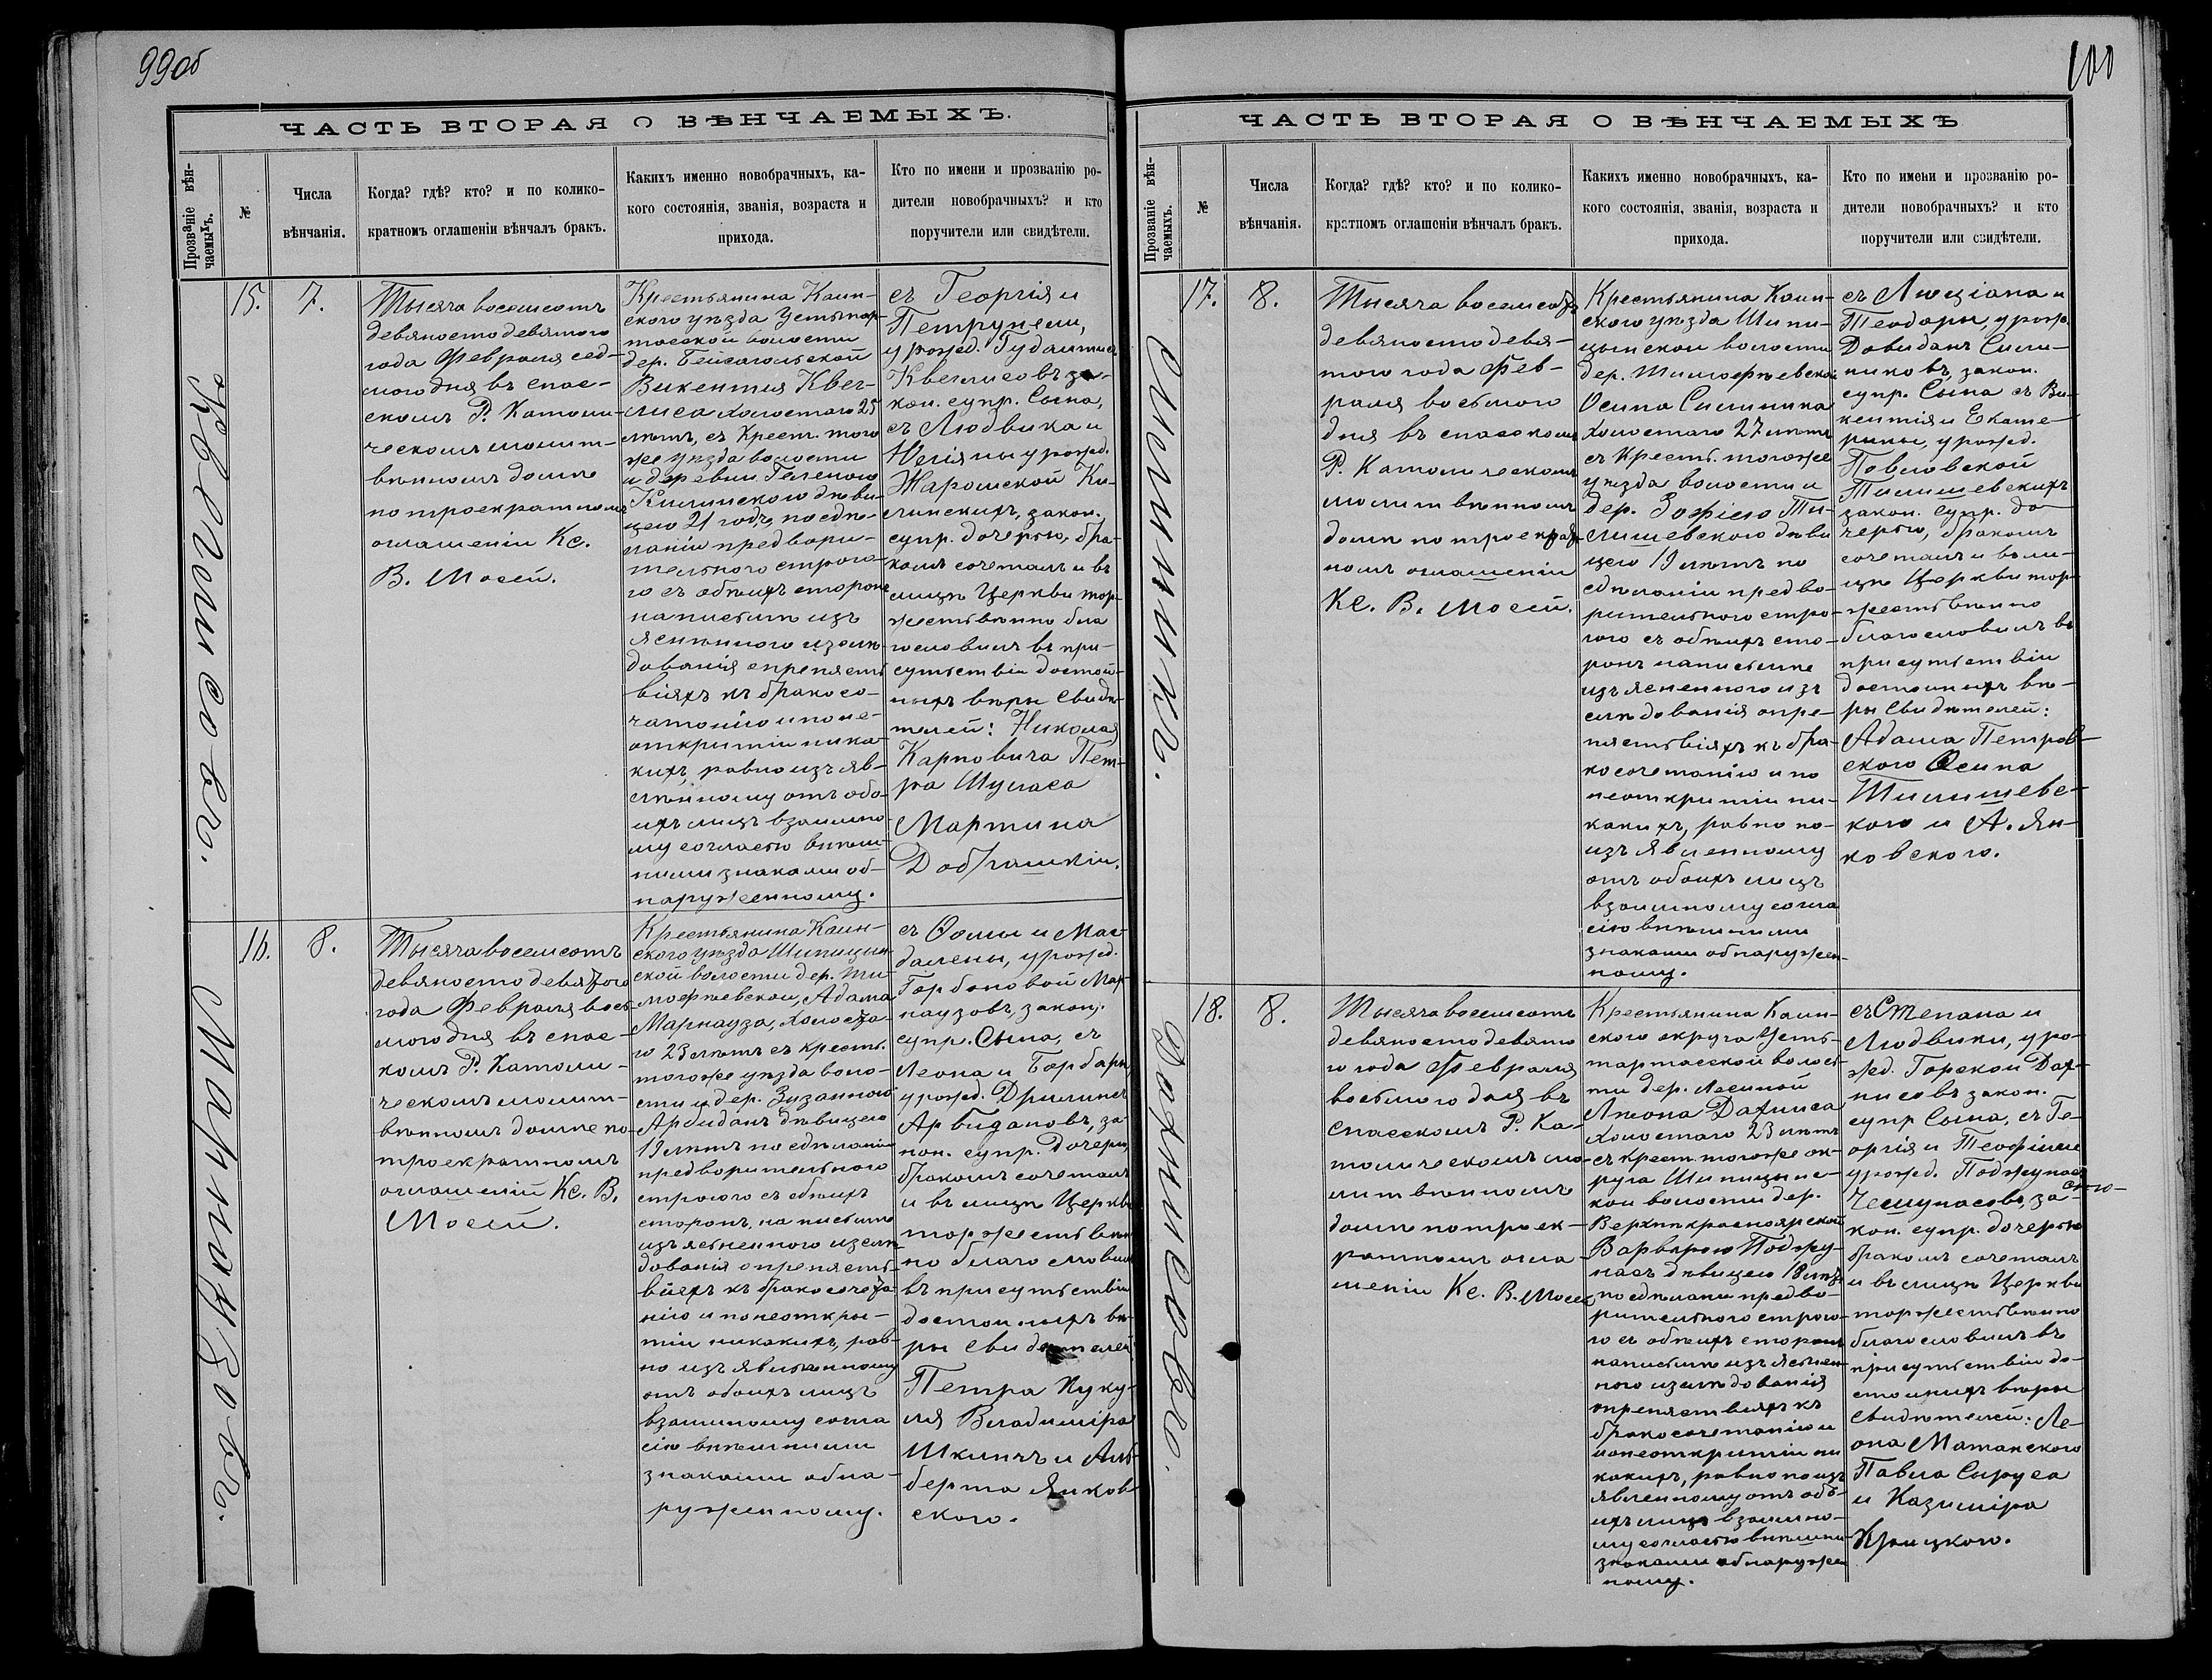 99об
ЧАСТЬ ВТОРАЯ О ВѢНЧАЕМЫХЪ.
Прозваніе вѣн-
чаемыхъ.
№
Числа
вѣнчанія.
Когда? гдѣ? кто? и по колико-
кратномъ оглашеніи вѣнчалъ бракъ.
Какихъ именно новобрачныхъ, ка-
кого состоянія, званія, возраста и
прихода.
Кто по имени и прозванію ро-
дители новобрачныхъ? и кто
поручители или свидѣтели.
Квеглисовъ.
15.
7.
Тысяча восемсотъ
девяностодевятого
года Февраля сед-
мого дня въ спас-
скомъ Р. Католи-
ческомъ молит-
вѣнномъ домѣ
по троекратномъ
оглашеніи Кс.
В. Мосей.
Крестьянина Каин-
ского уѣзда Устьтар-
тасской волости
дер. Бейсагольской
Викентія Квег-
лиса холостаго 25
лѣтъ, съ Крест. того
же уѣзда волости
и деревни Геленою
Килинскою дѣви-
цею 21 годъ, по сдѣ-
ланіи предвари-
тельного строго-
го съ обѣихъ сторонъ
написьмѣ изъ
ясненного изслѣ-
дованія опрепятст
віяхъ къ бракосо-
чатанію и поне-
открытіи ника-
кихъ, равно изъяв-
лѣнному отъ обо-
ихъ лицъ взаимно-
му согласію внѣш-
ними знаками об-
наруженному.
съ Георгія и
Петрунели,
урожд. Гудаитись
Квеглисовъ за-
кон. супр. Сына,
съ Людвика и
Юліяны урожд.
Жаромской Ки-
линскихъ, закон.
супр. дочерью, бра-
комъ сочеталъ и въ
лицѣ Церкви тор-
жествѣнно бла
гословилъ въ при-
сутствіи достой-
ныхъ вѣры Свидѣ-
телей: Николая
Карповича Пет-
ра Шуласа
Мартина
Добрашкіи.
Марнаузовъ.
16.
8.
Тысяча восемсотъ
девяностодевятого
года Февраля вось
мого дня въ спас-
комъ Р. Католи-
ческомъ молит-
вѣнномъ домѣ по
троекратномъ
оглашеніи Кс. В.
Мосей.
Крестьянина Каин-
ского уѣзда Шипицын
ской волости дер. Ти-
мофѣевской, Адама
Марнауза, холоста-
го 23 лѣтъ съ крест.
тогоже уѣзда воло-
сти и дер. Зузанною
Арбиданъ дѣвицею
19 лѣтъ по сдѣланіи
предварительного
строгого съ обѣихъ
сторонъ, на письмѣ
изъясненного изслѣ-
дованія опрепятст-
віяхъ къ бракосочета
нію и понеоткры-
тіи никакихъ, рав-
но изъявлѣнному
отъ обоихъ лицъ
взаимному согла
сію внѣшними
знаками обна-
руженному.
съ Ѳомы и Маг-
далены, урожд.
Горбоновой Мар-
наузовъ, закон.
супр. Сына, съ
Леона и Барбары
урожд. Дрилингъ
Арбидановъ, за-
кон. супр. Дочерью,
бракомъ сочеталъ
и въ лицѣ Церкви
торжествѣн
но благословилъ
въ присутствіи
достойныхъ вѣ-
ры Свидѣтелей
Петра Куку-
ля Владиміра
Шкинчъ и Аль-
берта Янков
ского.
100
ЧАСТЬ ВТОРАЯ О ВѢНЧАЕМЫХЪ
Прозваніе вѣн-
чаемыхъ.
№
Числа
вѣнчанія.
Когда? гдѣ? кто? и по колико-
кратномъ оглашеніи вѣнчалъ бракъ.
Какихъ именно новобрачныхъ, ка-
кого состоянія, званія, возраста и
прихода.
Кто по имени и прозванію ро-
дители новобрачныхъ? и кто
поручители или свидѣтели.
Силиниковъ.
17.
8.
Тысяча восемсотъ
девяностодевя-
того года Фев-
раля восьмого
дня въ спасскомъ
Р. Католическомъ
молитвѣнномъ
домѣ по троекрат
номъ оглашеніи
Кс. В. Мосей.
Крестьянина Каин-
ского уѣзда Шипи-
цынской волости
дер. Тимофѣевской
Осипа Силиника
холостаго 27 лѣтъ
съ Крест. тогоже
уѣзда волости и
дер. Зофіею Ти-
лишевскою дѣви
цею 19 лѣтъ по
сдѣланіи предва-
рительного стро-
гого съ обѣихъ сто-
ронъ написьмѣ
изъясненного изъ
слѣдованія опре-
пятствіяхъ къ бра-
косочетанію и по
неоткрытіи ни-
какихъ, равно по-
изъявленному
отъ обоихъ лицъ
взаимному согла
сію внѣшними
знаками обнаружен-
ному.
съ Люціана и
Теодоры, урожд.
Довиданъ Сили-
никовъ, закон.
супр. Сына съ Ви-
кентія и Екате-
рины, урожд.
Павловской
Тилишевскихъ
закон. супр. до-
черью, бракомъ
сочеталъ и въ ли-
цѣ Церкви тор-
жествѣнно
благословилъ въ
присутствіи
достойныхъ вѣ-
ры Свидѣтелей:
Адама Петров-
ского Осипа
Тилишевс-
кого и А. Ян-
ковского.
Дахнисовъ.
18.
8.
Тысяча восемсотъ
девяностодевято
го года Февраля
восьмого дня въ
спасскомъ Р. Ка-
толическомъ мо-
литвѣнномъ
домѣ по троек-
ратномъ огла-
шеніи Кс. В. Мосей
Крестьянина Каин-
ского округа Усть-
тартасской волос-
ти дер. Лесиной
Антона Дахниса
холостаго 23 лѣтъ
съ крест. тогоже ок-
руга Шипицынс-
кой волости дер.
Верхнекрасноярской
Варварою Поджу-
насъ дѣвицею 18 лѣтъ
по сдѣлани предва-
рительного строго-
го съ обѣихъ сторонъ
написьмѣ изъяснен-
ного изслѣдованія
опрепятствіяхъ къ
бракосочетанію и
понеоткрытіи ни
какихъ, равно по изъ
явленному отъ обо-
ихъ лицъ взаимно-
му согласію внѣшни-
знаками обнаружен
ному.
съ Степана и
Людвики, уро-
жд. Горской Дах-
нисовъ закон.
супр Сына, съ Ге-
оргія и Теофили
урожд. Поджунас
Чешунасовъ, за-
кон. супр. дочерью
бракомъ сочеталъ
и въ лицѣ Церкви
торжествѣнно
благословилъ въ
присутствіи до-
стойныхъ вѣры
Свидѣтелей: Ле-
она Матанского
Павла Сируса
и Казиміра
Крицкого.